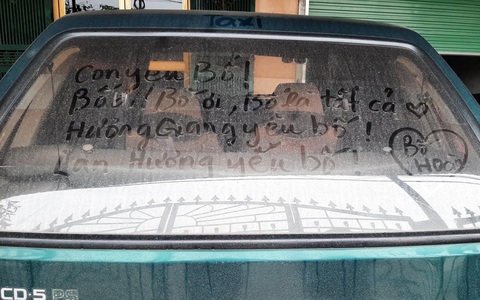 Taxi
Con yêu Bố!
Bố ơi! Bố ơi, Bố là tất cả ♡
Hương Giang yêu bố!
Lan Hương yêu bố!
Bố
CD-5